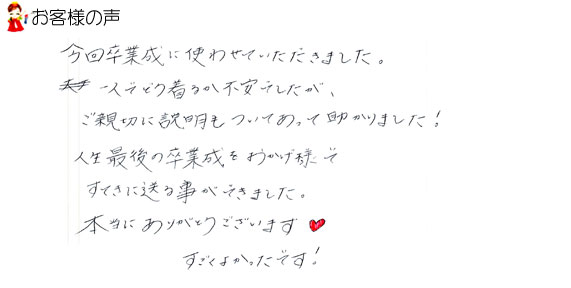 お客様の声
今回卒業成に使わせていただきました。
一人でどう着るか不安でしたが、
ご親切に説明もついてあって助かりました！
人生最後の卒業成をおかげ様で
すてきに送る事ができました。
本当にありがとうございます
すごくよかったです！